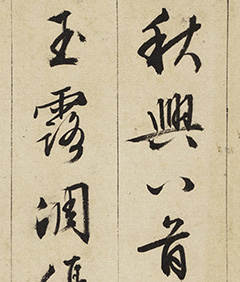 秋興八首
玉露凋傷